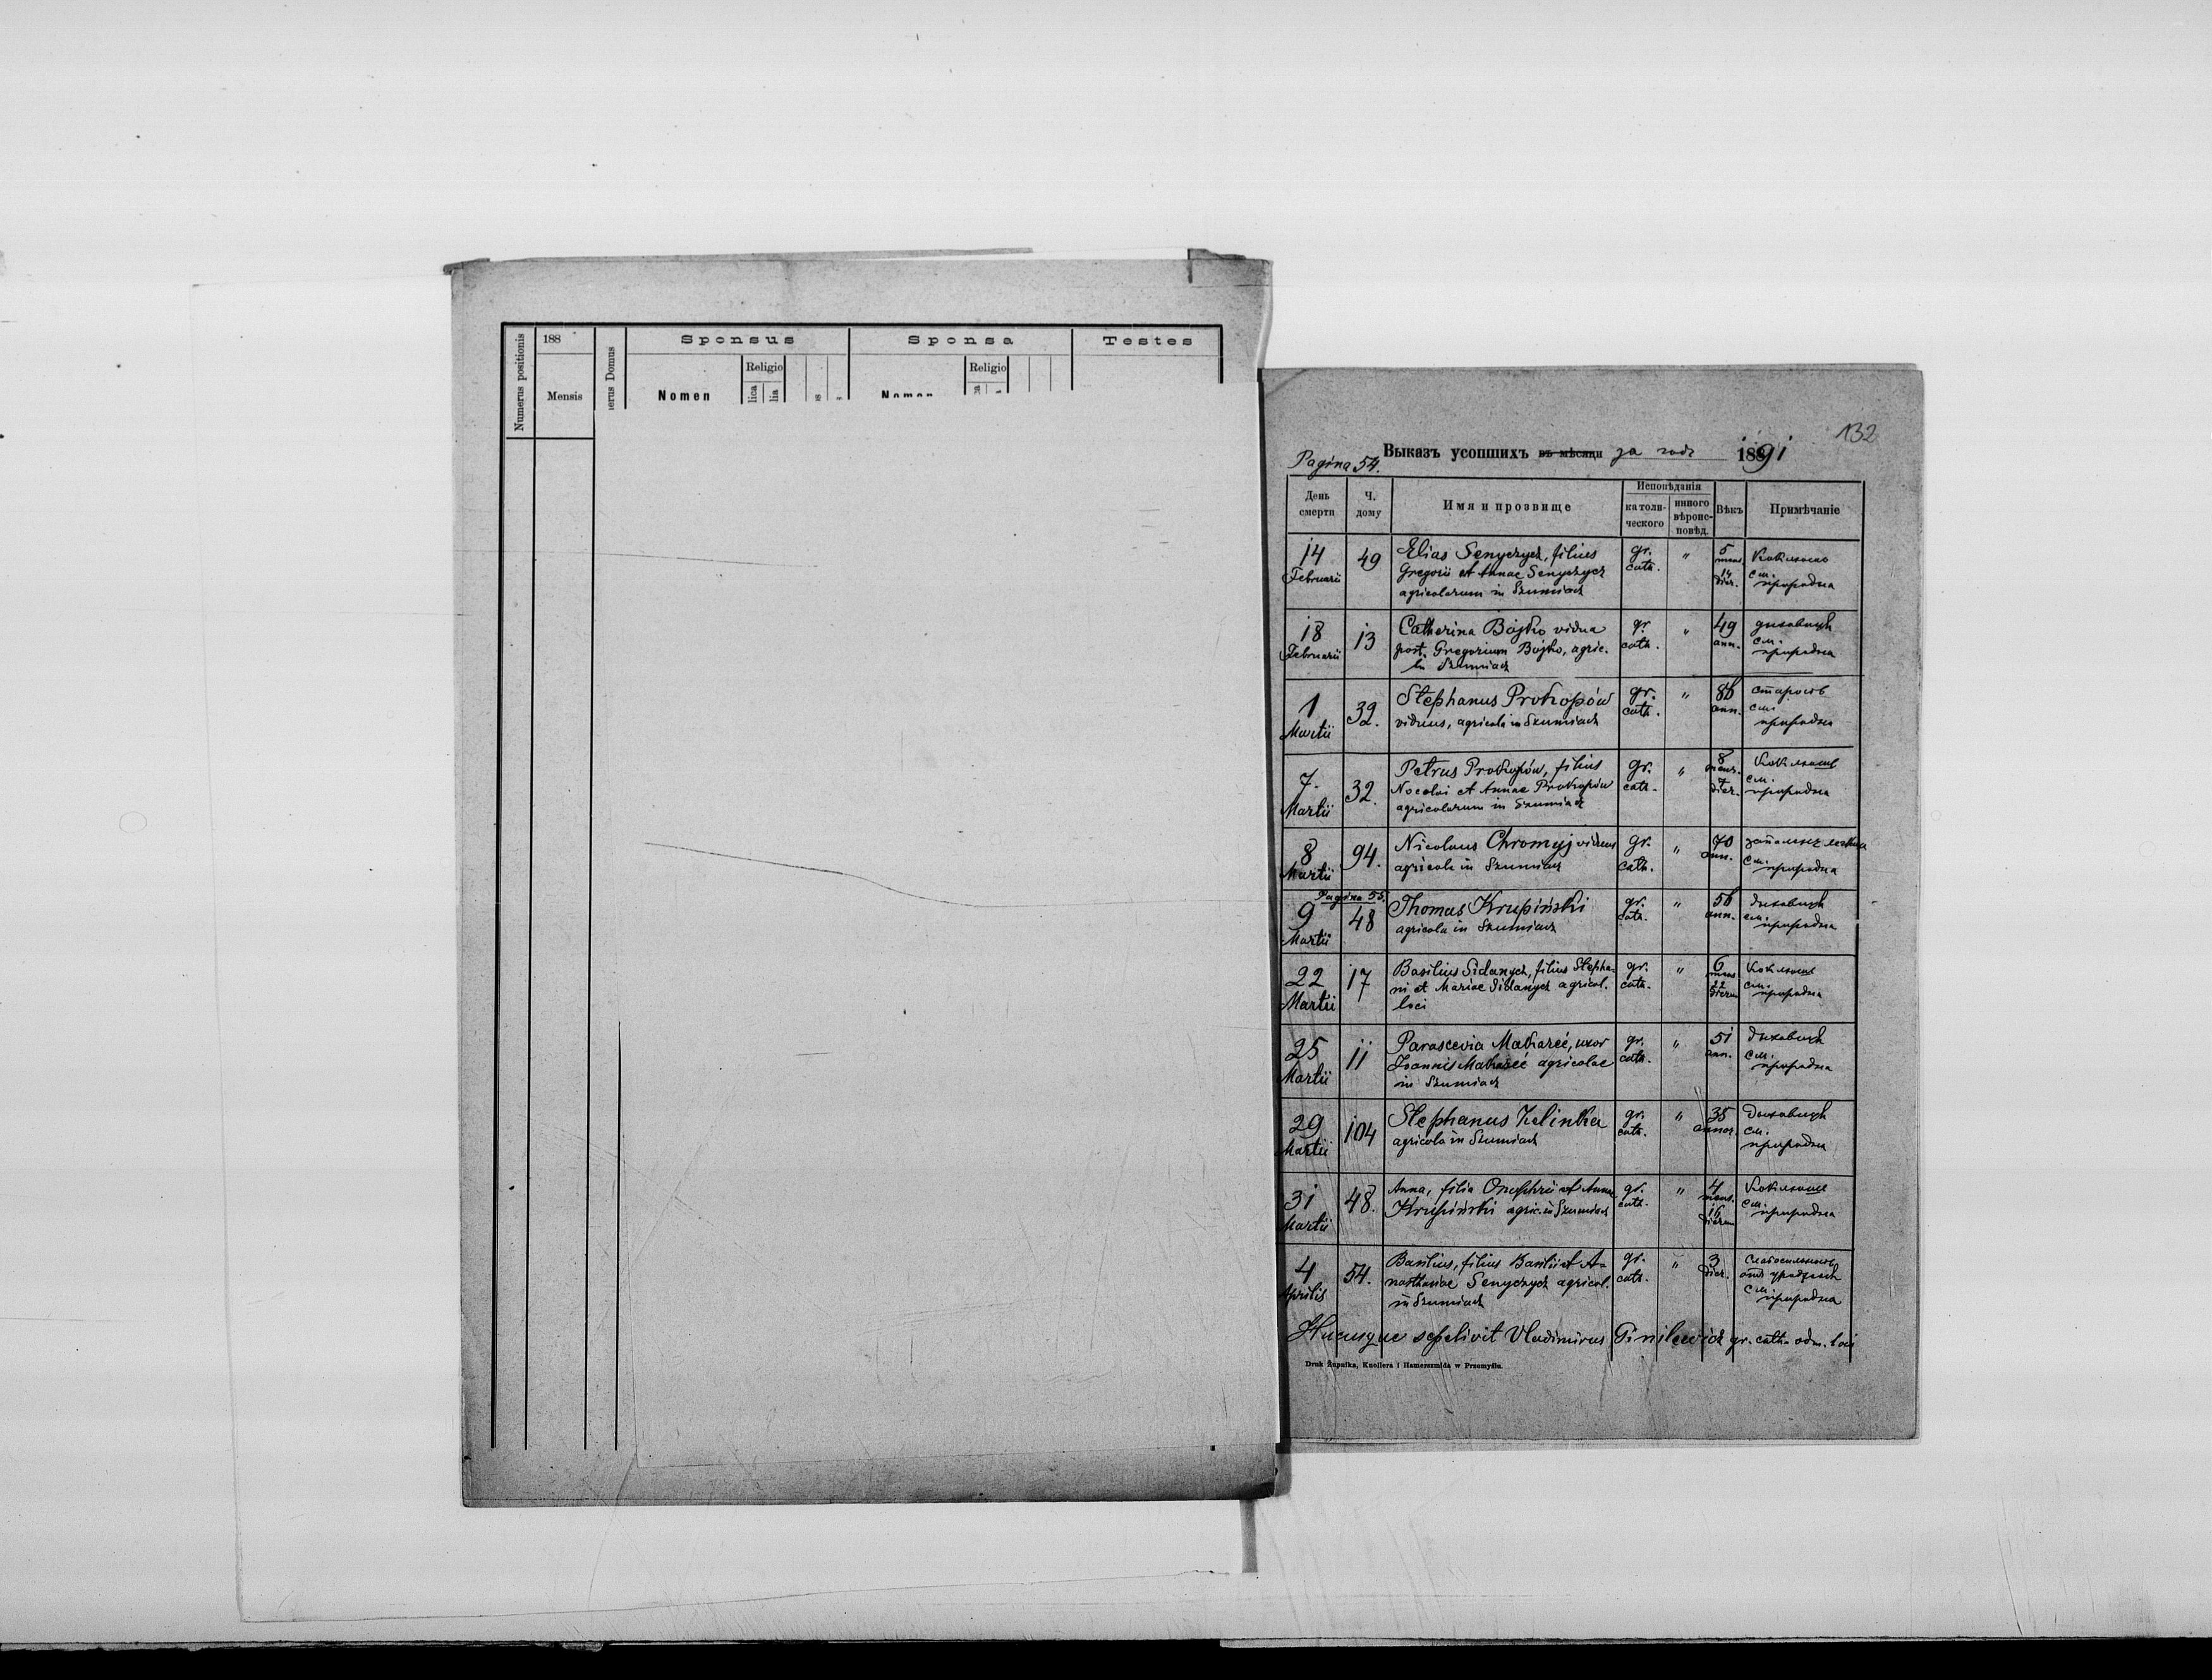 Numerus positionis
188
Mensis
erus Domus
Sponsus
Nomen
Religio
lica
lia
Sponsa
Nomen
Religio
Testes
132
Pagina 54.
Выказъ усопшихъ въ мѣсяци за годъ 1891
День смерти
Ч. дому
Имя и прозвище
Исповѣданія
католи-ческого
инного вѣроис-повѣд.
Вѣкъ
Примѣчаніе
14 Februarii 49 Elias Senyczych, filius gr. cath. " 5 mens. 14 dier. Коклюшъ
Gregorii et Annae Senyczych см. природна
agricolarum in Szumiach
18 Februarii 13 Catherina Bojko vidua gr. cath. " 49 ann. духавиця
post. Gregorium Bojko, agric. см. природна
in Szumiach
1 Martii 32. Stephanus Prokopów gr. cath. " 86 ann. старость
viduus, agricola in Szumiach см. природна
7. Martii 32. Petrus Prokopów, filius gr. cath. " 8 mens. 7 dier. Коклюшъ
Nocolai et Annae Prokopów см. природна
agricolarum in Szumiach
8 Martii 94. Nicolaus Chromyj viduus gr. cath. " 70 ann.
agricola in Szumiach см. природна
Pagina 55.
9 Martii 48 Thomas Krupiński gr. cath. " 56 ann. духавиця
agricola in Szumiach см. природна
22 Martii 17 Basilius Sidanych, filius Stepha- gr. cath. " 6 mens. 22 dierum Коклюшъ
ni et Mariae Sidanych agricol. см. природна
loci
25 Martii 11 Parascevia Makareć, uxor gr. cath. " 51 ann. духавиця
Joannis Makareć agricolae см. природна
in Szumiach
29 Martii 104 Stephanus Zelinka gr. cath. " 35 annor. духавиця
agricola in Szumiach см. природна
31 Martii 48. Anna, filia Onuphrii et Annae gr. cath. " 4 mens. 16 dierum Коклюшъ
Krupiński agric. in Szumiach см. природна
4 Aprilis 54. Basilius, filius Basilii et A- gr. cath. " 3 dier.
nasthasiae Senyczych agricol.
in Szumiach см. природна
Hucusque sepelivit Vladimirus Pinilewicz gr. cath. adm. loci
Druk Żupnika, Knollera i Hamerszmida w Przemyślu.